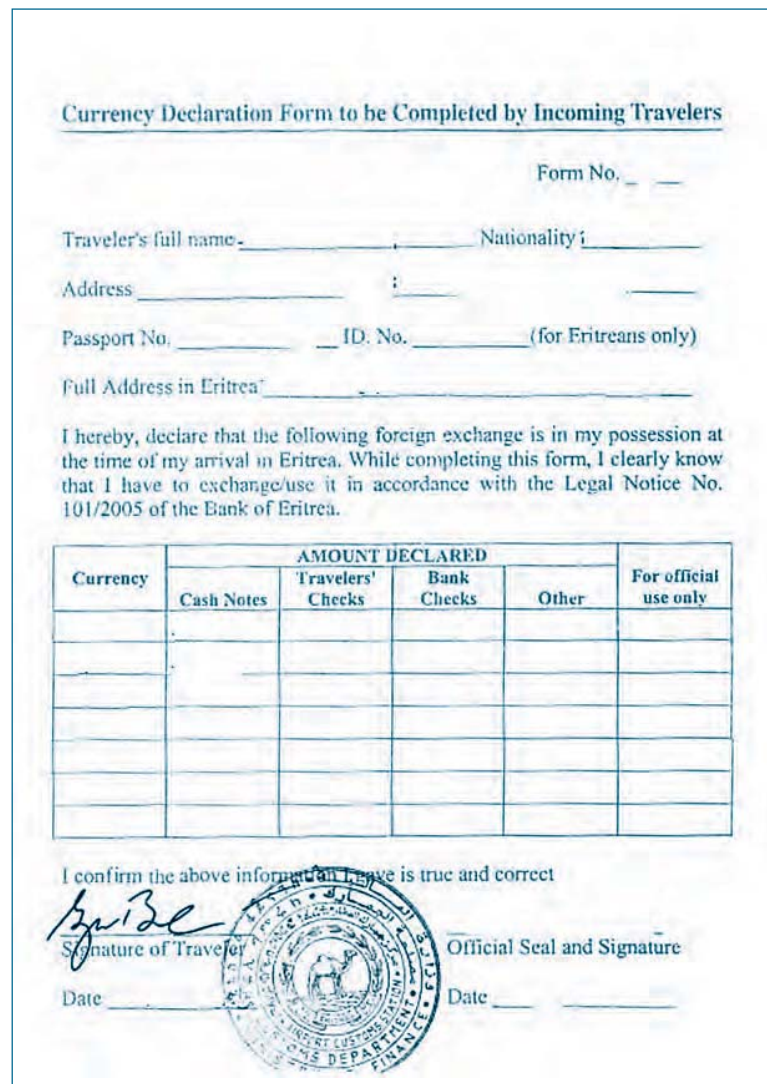 Currency Declaration Form to be Completed by Incoming Travelers
Form No.
Traveler's full name Nationality
Address
Passport No. ID. No. (for Eritreans only)
Full Address in Eritrea
I hereby, declare that the following foreign exchange is in my possession at
the time of my arrival in Eritrea. While completing this form, I clearly know
that I have to exchange/use it in accordance with the Legal Notice No.
101/2005 of the Bank of Eritrea.
AMOUNT DECLARED
Currency Cash Notes Travelers' Checks Bank Checks Other For official use only
I confirm the above information I gave is true and correct
Signature of Traveler Official Seal and Signature
Date Date
AIRPORT CUSTOMS STATION
CUSTOMS DEPARTMENT
FINANCE